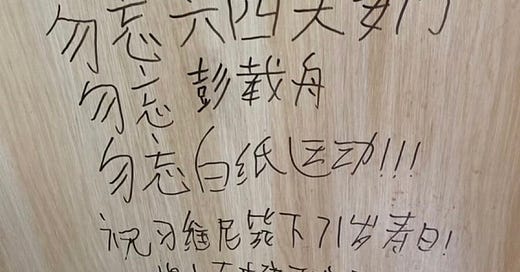 勿忘六四天安门
勿忘彭载舟
勿忘白纸运动!!!
祝习维尼熊下71岁寿日!